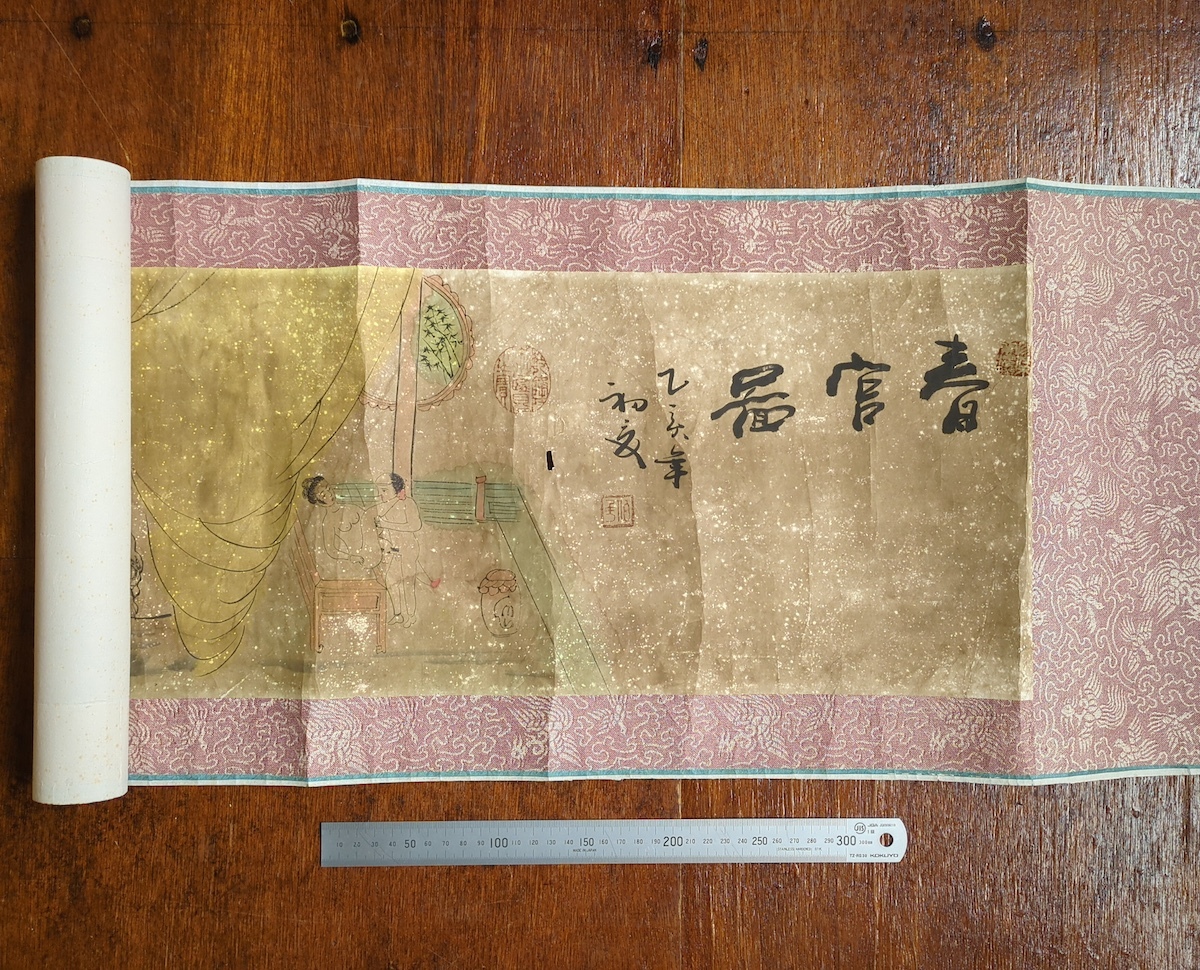 春宫啚
乙亥年
初夏
10 20 30 40 50 60 70 80 90 100 110 120 130 140 150 160 170 180 190 200 210 220 230 240 250 260 270 280 290 300
JIS
MADE IN JAPAN